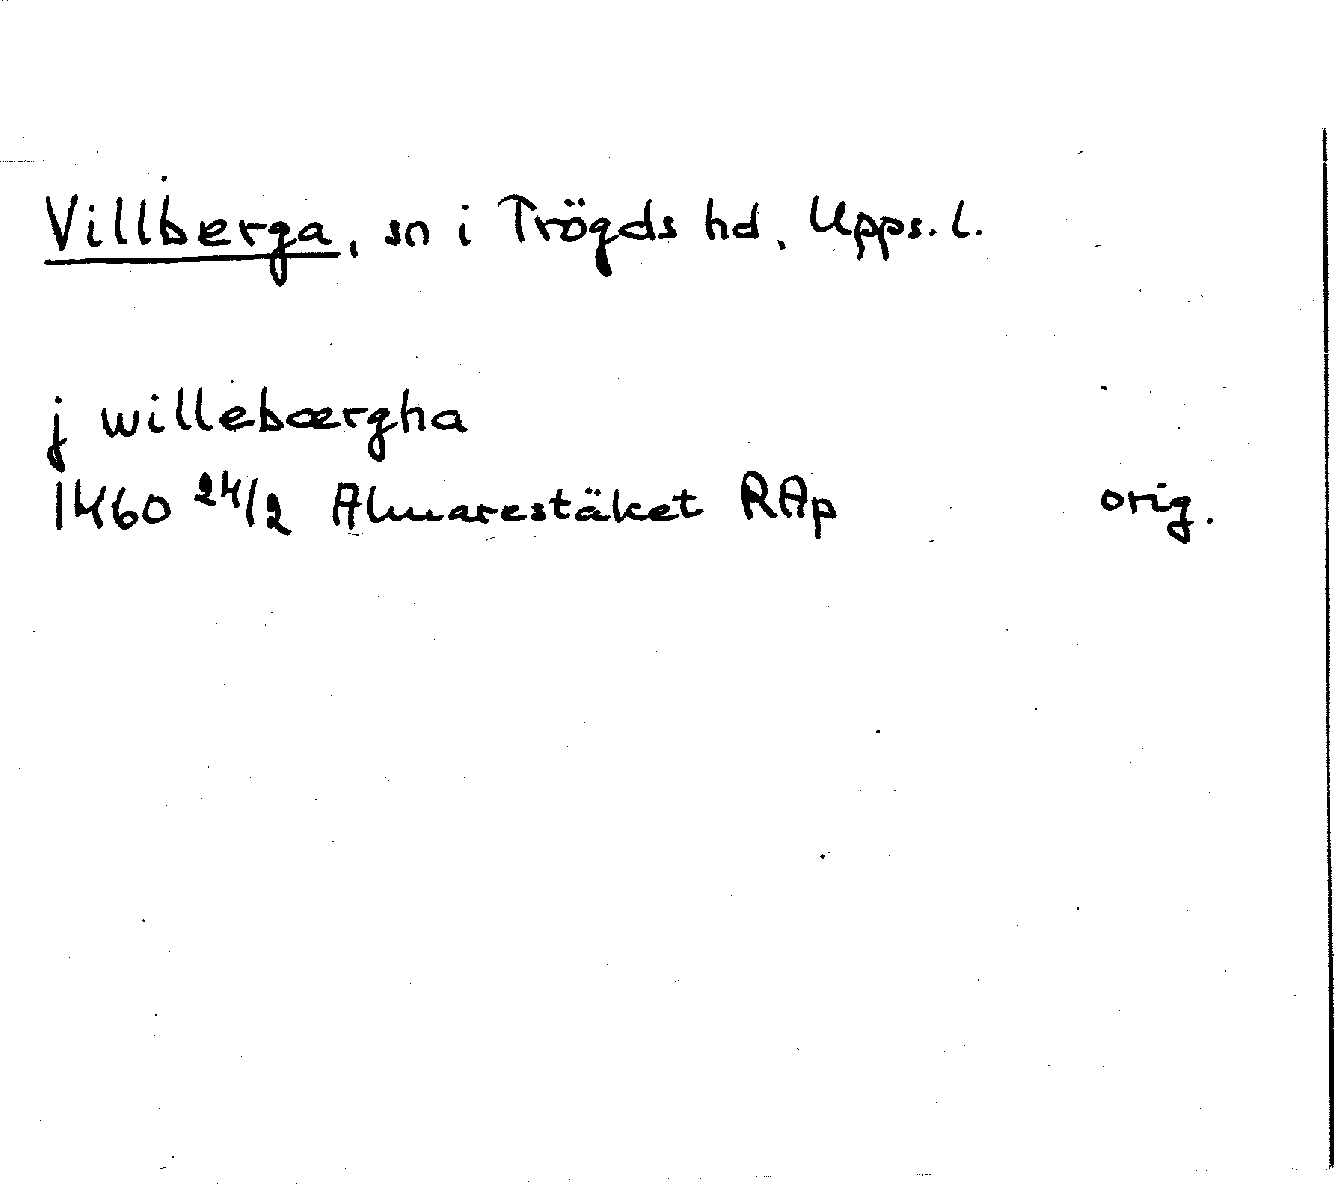 Villberga, sn i Trögds hd, Upps. l.
j willebærgha
1460 24/2 Almarestäket RAp orig.